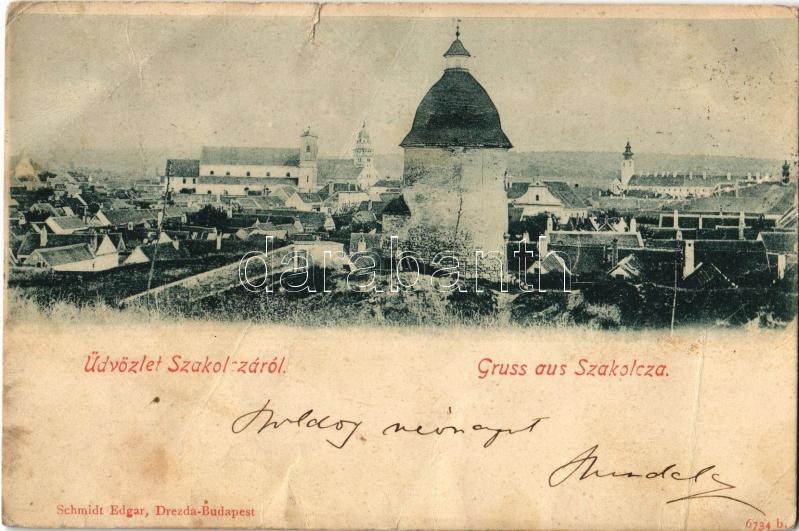 darabanth
Üdvözlet Szakolczáról.
Gruss aus Szakolcza.
Boldog névnapot
Schmidt Edgar, Drezda-Budapest
6734 b.